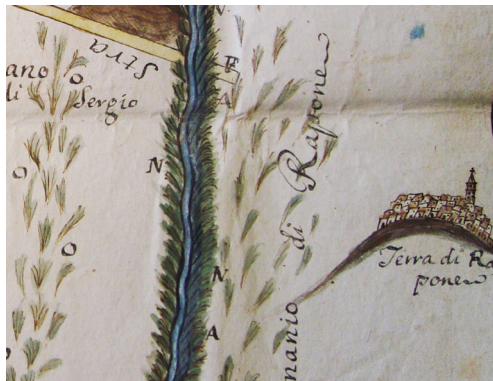 Stra
ano
di
Sergio
N
F
A
N
N
A
manio di Rapone
Terra di Ra
pone